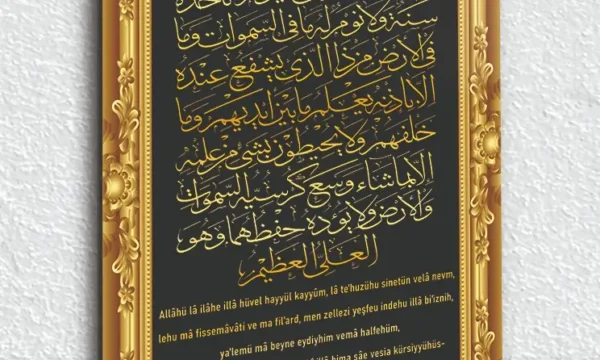 سنة ولا نوم له ما في السموات وما
في الارض من ذا الذي يشفع عنده
الا باذنه يعلم ما بين ايديهم وما
خلفهم ولا يحيطون بشئ من علمه
الا بما شاء وسع كرسيه السموات
والارض ولا يؤده حفظهما وهو
العلي العظيم
Allâhü lâ ilâhe illâ hüvel hayyül kayyûm, lâ te'huzühu sinetün velâ nevm,
lehu mâ fissemâvâti ve ma fil'ard, men zellezi yeşfeu indehu illâ bi'iznih,
ya'lemü mâ beyne eydiyhim vemâ halfehüm,
illâ bima şâe vesia kürsiyyühüs-